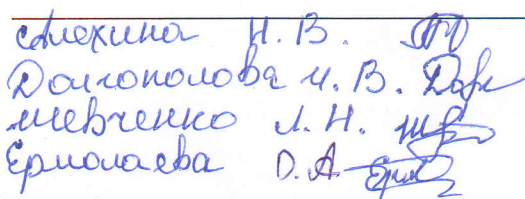 Алехина Н. В.
Долгополова И. В.
Шевченко Л. Н.
Ермолаева О. А.